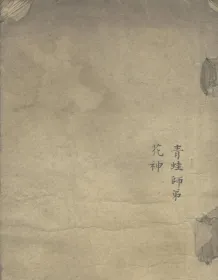 青蛙師弟
花神